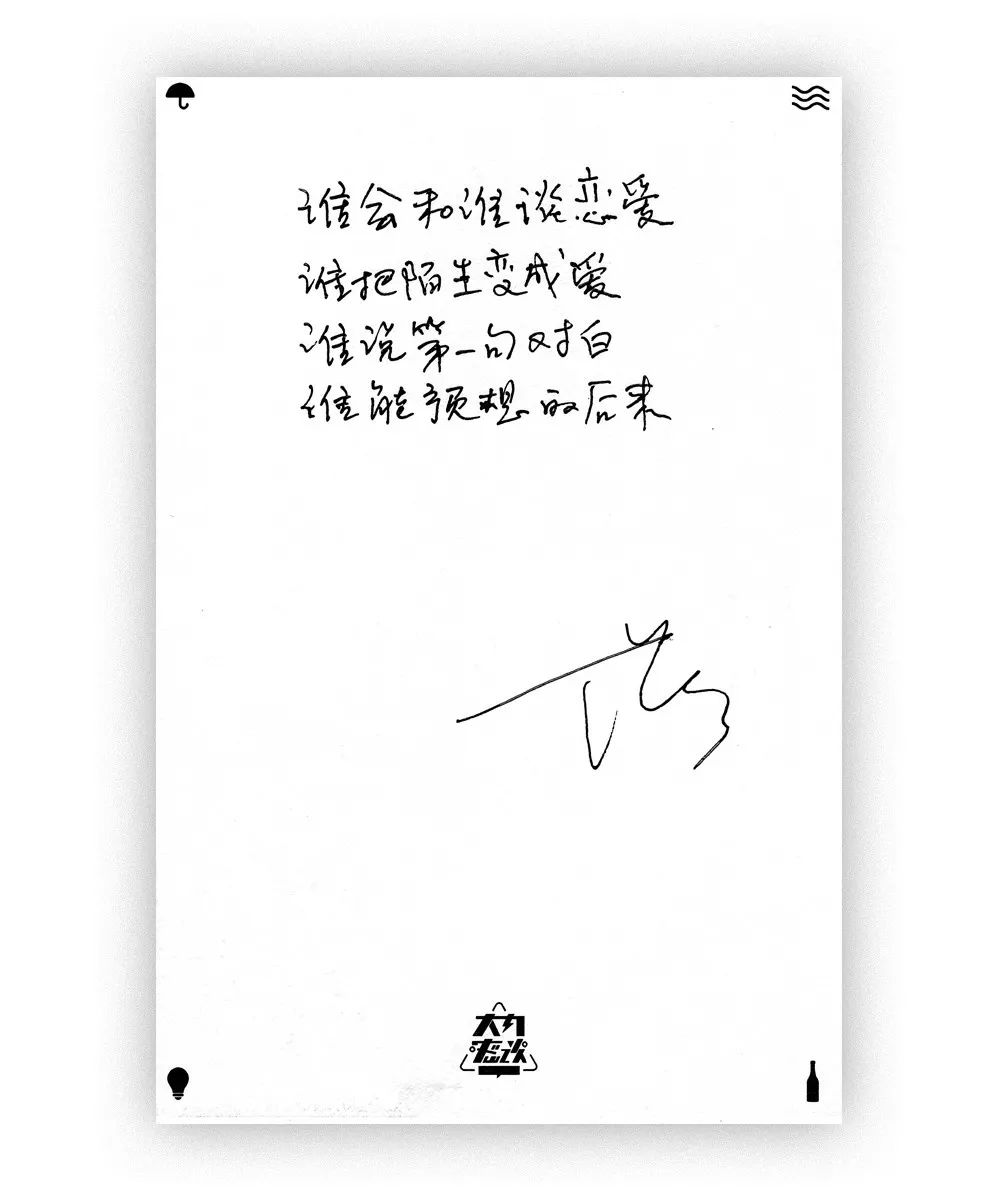 谁会和谁谈恋爱
谁把陌生变成爱
谁说第一句对白
谁能预想的后来